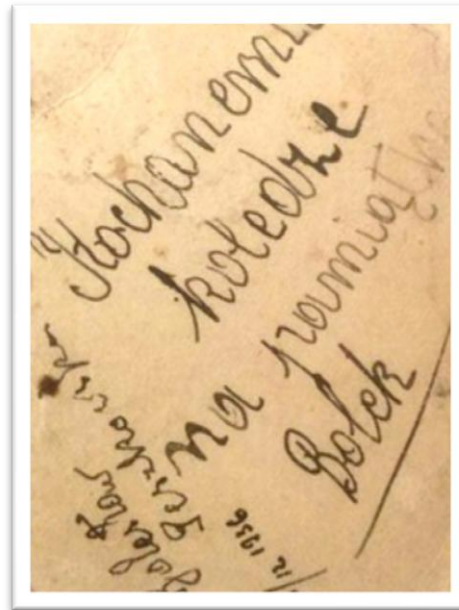 Kochanemu
koledze
na pamiątkę
Bolek
Bolesław
1936